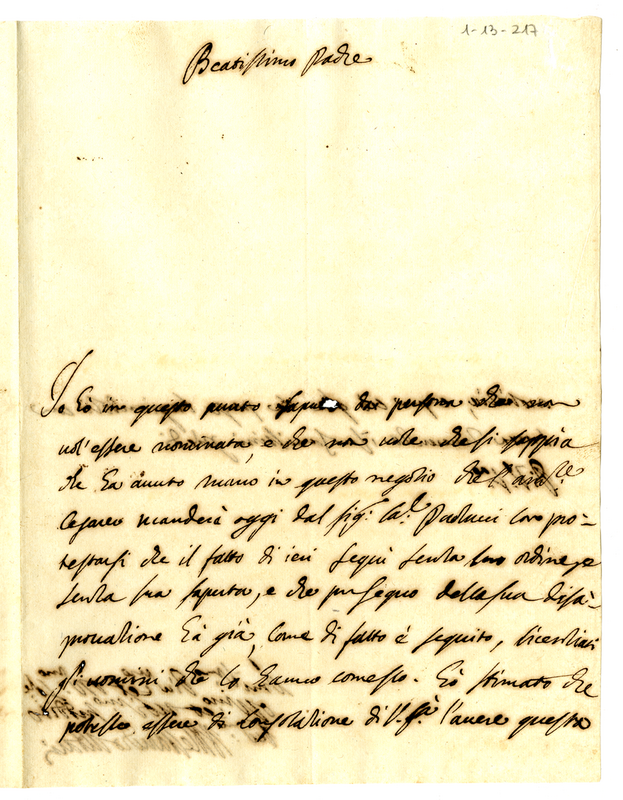 1-13-217
Beatissimo Padre
Io hò in questo punto saputo da persona che non
uol'essere nominata, e che non uole che si sappia
che ha àuuto mano in questo negozio che l'amb.re
Cesareo manderà oggi dal sig.r Ca.l Paulucci à pro-
testarsi che il fatto di ieri seguì senza suo ordine, e
senza sua saputa, e che per segno della sua disa-
prouazione hà già, come di fatto è seguito, licenziati
gl'uomini che lo hanno comesso. Hò stimato che
potesse essere di consolazione di V. S.tà l'auere questa